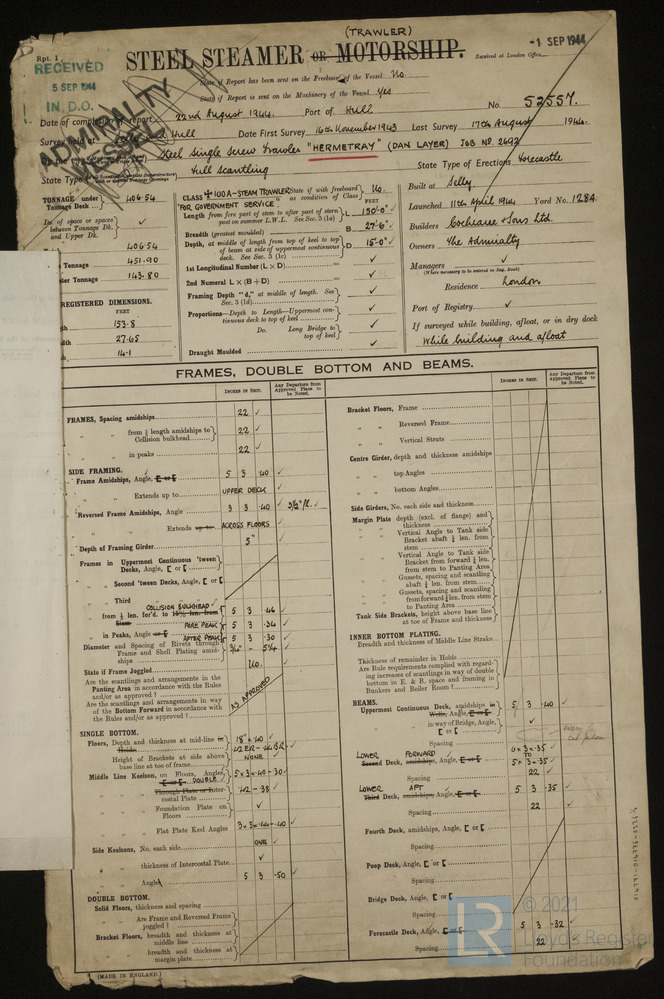 (TRAWLER)
Rpt. 1
STEEL STEAMER OR MOTORSHIP.
-1 SEP 1944
Received at London Office
RECEIVED
5 SEP 1944
IN D.O.
ADMIRALTY
State if Report has been sent on the Freeboard of the Vessel No.
State if Report is sent on the Machinery of the Vessel Yes
Date of completion of report 22nd August 1944. Port of Hull No. 52557.
Survey held at Selby and Hull Date First Survey 16th November 1943 Last Survey 17th August 1944.
On the Steel Single Screw Trawler "HERMETRAY" (DAN LAYER) JOB No. 2692
State Type Full Scantling State Type of Erections Forecastle
TONNAGE under Tonnage Deck 406.54
Do. of space or spaces between Tonnage Dk. and Upper Dk. ✓
406.54
Tonnage 451.90
Tonnage 143.80
REGISTERED DIMENSIONS.
FEET
153.8
27.65
14.1
CLASS ✠100A-STEAM TRAWLER State if with freeboard as condition of Class No.
"FOR GOVERNMENT SERVICE"
Length from fore part of stem to after part of stern post on summer L.W.L. See Sec. 3 (1a) L 150'-0" ✓
Breadth (greatest moulded) B 27'-6" ✓
Depth, at middle of length from top of keel to top of beam at side of uppermost continuous deck. See Sec. 3 (1c) D 15'-0" ✓
1st Longitudinal Number (L × D) = ✓
2nd Numeral L × (B + D) = ✓
Framing Depth "d," at middle of length. See Sec. 3 (1d) ✓
Proportions—Depth to Length—Uppermost continuous deck to top of keel ✓
Do. Long Bridge to top of keel ✓
Draught Moulded ✓
Built at Selby
Launched 11th April 1944 Yard No. 1284
Builders Cochrane & Sons Ltd.
Owners The Admiralty
Managers ✓
(Where necessary to be entered in Reg. Book)
Residence London
Port of Registry ✓
If surveyed while building, afloat, or in dry dock
While building and afloat
FRAMES, DOUBLE BOTTOM AND BEAMS.
INCHES IN SHIP.
Any Departure from Approved Plans to be Noted.
FRAMES, Spacing amidships 22 ✓
" " from ⅕ length amidships to Collision bulkhead 22 ✓
" " in peaks 22 ✓
SIDE FRAMING.
Frame Amidships, Angle, [ or [ 5 3 .40 ✓
" " Extends up to UPPER DECK ✓
Reversed Frame Amidships, Angle 3 3 .40 ✓ 3½" fl. ✓
" " Extends up to ACROSS FLOORS ✓
Depth of Framing Girder 5" ✓
Frames in Uppermost Continuous 'tween Decks, Angle, [ or [
" Second 'tween Decks, Angle, [ or [
" Third " " "
COLLISION BULKHEAD ✓
" from ⅕ len. for'd. to 15% len. from Stem 5 3 .46 ✓
" in Peaks, Angle or [ FORE PEAK 5 3 .34 ✓
AFTER PEAK 5 3 .30 ✓
Diameter and Spacing of Rivets through Frame and Shell Plating amidships ¾" - 5¼ ✓
State if Frame Joggled No.
Are the scantlings and arrangements in the Panting Area in accordance with the Rules and/or as approved?
Are the scantlings and arrangements in way of the Bottom Forward in accordance with the Rules and/or as approved?
AS APPROVED
SINGLE BOTTOM.
Floors, Depth and thickness at mid-line in Holds 18" × .40 ✓
.42 ER - .46 BR ✓
Height of Brackets at side above base line at toe of frame NONE ✓
Middle Line Keelson, on Floors, Angles, [ or [ DOUBLE 5 × 3 × .40 - .30 ✓
" " Through Plate or Intercostal Plate .42 - .38 ✓
" " Foundation Plate on Floors ✓
" " Flat Plate Keel Angles 3 × 3 × .44 - .40 ✓
Side Keelsons, No. each side ONE ✓
" " thickness of Intercostal Plate ✓
" " Angle 5 3 .50 ✓
DOUBLE BOTTOM.
Solid Floors, thickness and spacing
" " Are Frame and Reversed Frame joggled?
Bracket Floors, breadth and thickness at middle line
" " breadth and thickness at margin plate
(MADE IN ENGLAND.)
INCHES IN SHIP.
Any Departure from Approved Plans to be Noted.
Bracket Floors, Frame
" " Reversed Frame
" " Vertical Struts
Centre Girder, depth and thickness amidships
" " top Angles
" " bottom Angles
Side Girders, No. each side and thickness
Margin Plate depth (excl. of flange) and thickness
" " Vertical Angle to Tank side Bracket abaft ⅕ len. from stem
" " Vertical Angle to Tank side Bracket from forward ⅕ len. from stem to Panting Area
" " Gussets, spacing and scantling abaft ⅕ len. from stem
" " Gussets, spacing and scantling from forward ⅕ len. from stem to Panting Area
Tank Side Brackets, height above base line at toe of Frame and thickness
INNER BOTTOM PLATING.
Breadth and thickness of Middle Line Strake
Thickness of remainder in Holds
Are Rule requirements complied with regarding increases of scantlings in way of double bottom in E. & B. space and framing in Bunkers and Boiler Room?
BEAMS.
Uppermost Continuous Deck, amidships in Wells, Angle, [ or [ 5 3 .40 ✓
" " in way of Bridge, Angle, [ or [ ✓
Spacing
LOWER FORWARD
Second Deck, amidships, Angle, [ or [ 6 × 3 × .35 ✓
TO
5 × 3 × .35 ✓
Spacing 22 ✓
LOWER AFT
Third Deck, amidships, Angle, [ or [ 5 3 .35 ✓
Spacing 22 ✓
Fourth Deck, amidships, Angle, [ or [
Spacing
Poop Deck, Angle, [ or [
Spacing
Bridge Deck, Angle, [ or [
Spacing
Forecastle Deck, Angle, [ or [ 5 3 .32 ✓
Spacing 22 ✓
LR
© 2021
Lloyd's Register
Foundation